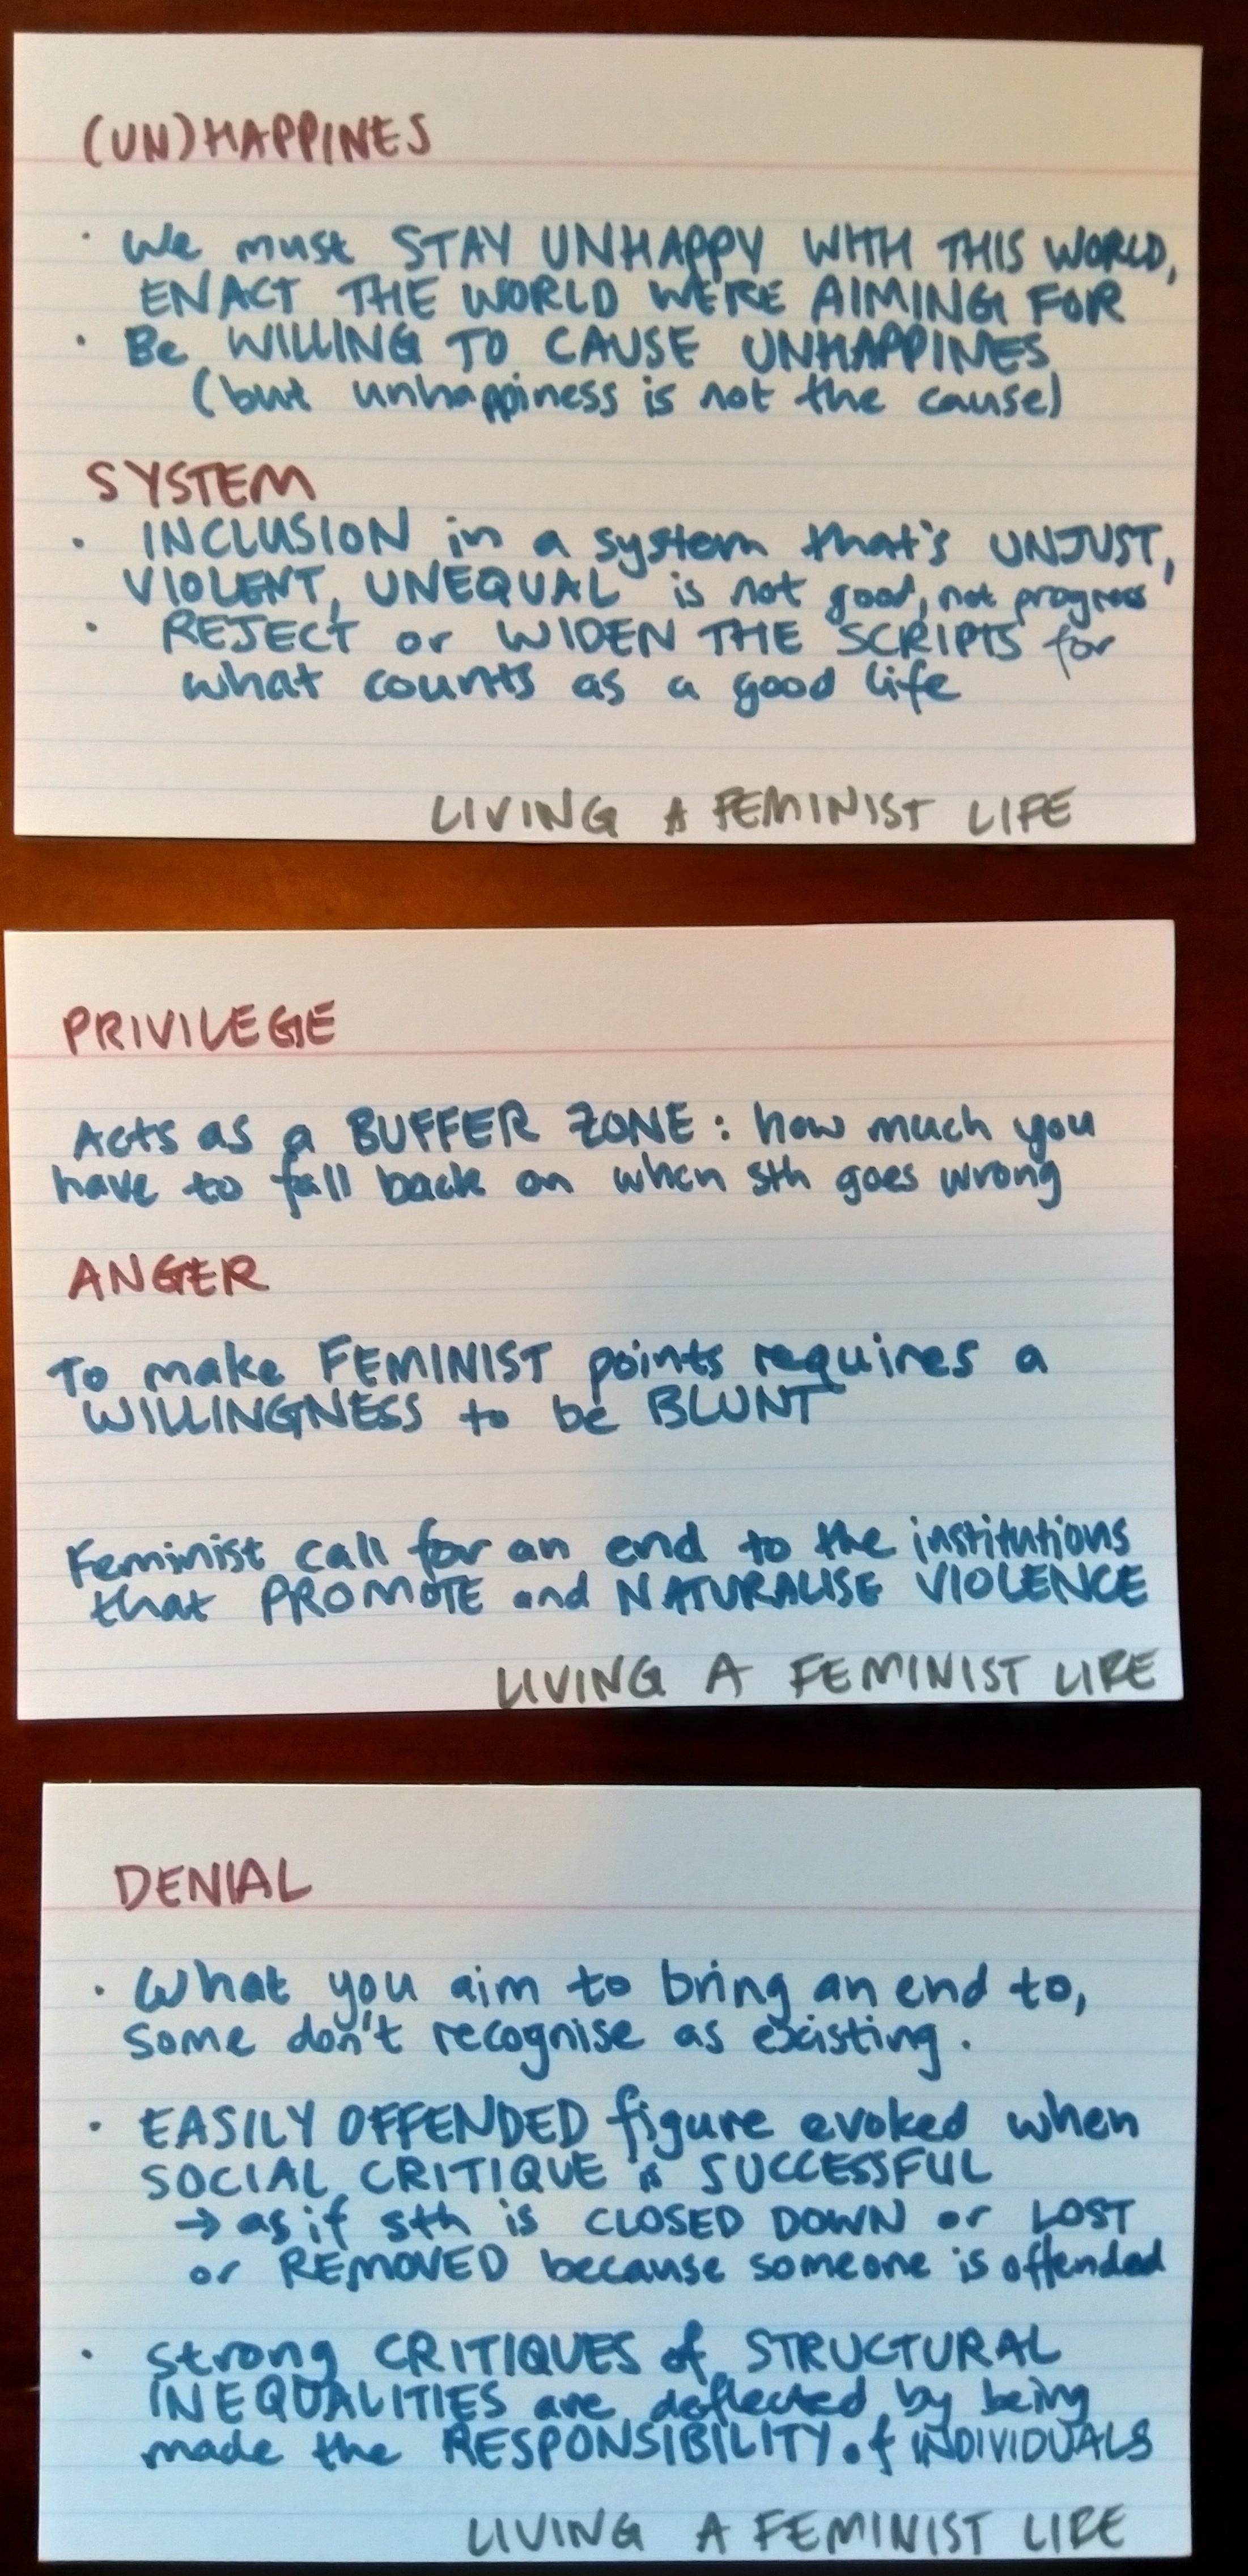 (UN)HAPPINES
· We must STAY UNHAPPY WITH THIS WORLD,
ENACT THE WORLD WE'RE AIMING FOR
· Be WILLING TO CAUSE UNHAPPINES
(but unhappiness is not the cause)
SYSTEM
· INCLUSION in a system that's UNJUST,
VIOLENT, UNEQUAL is not good, not progress
· REJECT or WIDEN THE SCRIPTS for
what counts as a good life
LIVING A FEMINIST LIFE
PRIVILEGE
Acts as a BUFFER ZONE: how much you
have to fall back on when sth goes wrong
ANGER
To make FEMINIST points requires a
WILLINGNESS to be BLUNT
Feminist call for an end to the institutions
that PROMOTE and NATURALISE VIOLENCE
LIVING A FEMINIST LIFE
DENIAL
· What you aim to bring an end to,
some don't recognise as existing.
· EASILY OFFENDED figure evoked when
SOCIAL CRITIQUE is SUCCESSFUL
→ as if sth is CLOSED DOWN or LOST
or REMOVED because someone is offended
· strong CRITIQUES of STRUCTURAL
INEQUALITIES are deflected by being
made the RESPONSIBILITY of INDIVIDUALS
LIVING A FEMINIST LIFE